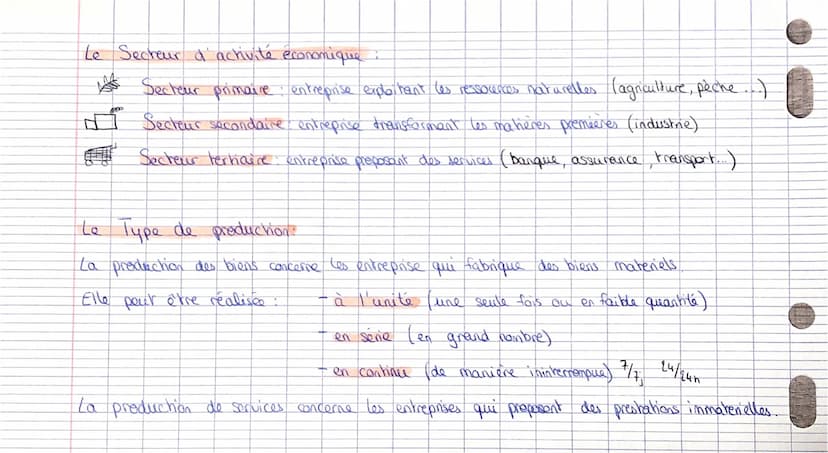 Le Secteur d'activité économique :
Secteur primaire : entreprise exploitant les ressources naturelles (agriculture, pèche ...)
Secteur secondaire : entreprise transformant les matières premières (industrie)
Secteur tertiaire : entreprise proposant des services (banque, assurance, transport...)
Le Type de production :
La production des biens concerne les entreprise qui fabrique des biens materiels.
Elle peut être réalisée : - à l'unité (une seule fois ou en faible quantité)
- en série (en grand nombre)
- en continu (de manière ininterrompue) 7/7j 24/24h
La production de services concerne les entreprises qui proposent des prestations immaterielles.